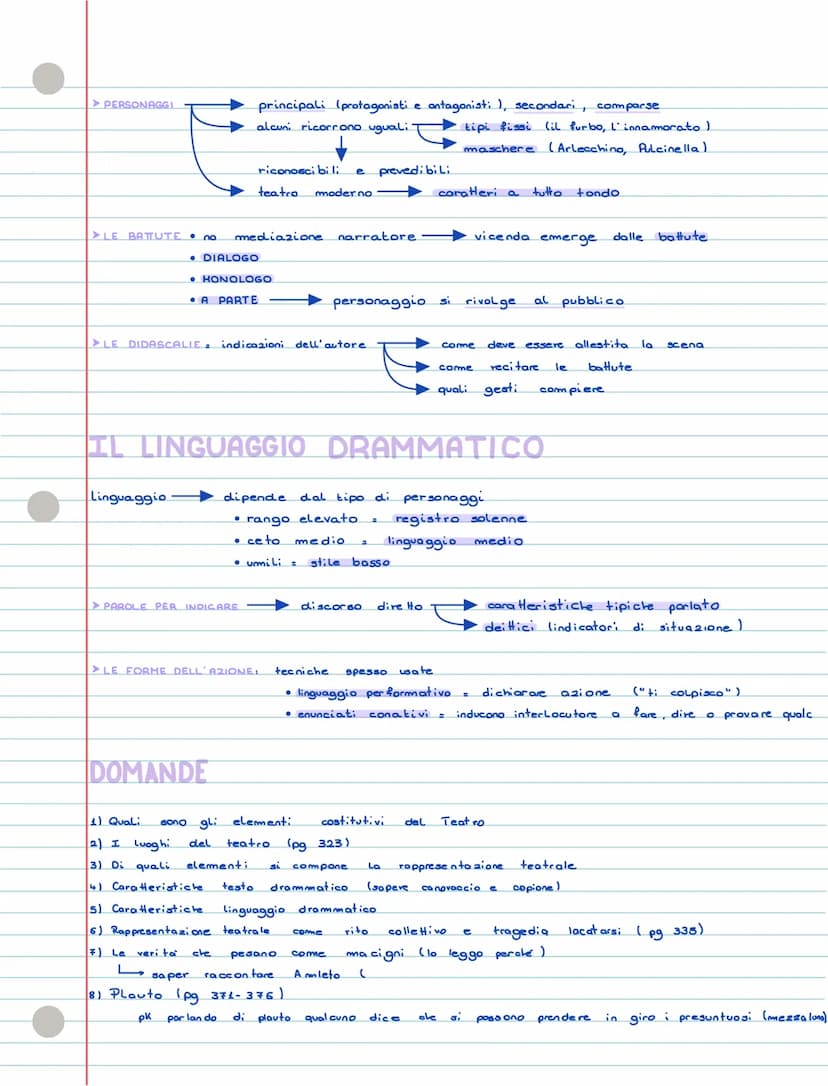 > PERSONAGGI → principali (protagonisti e antagonisti), secondari, comparse
→ alcuni ricorrono uguali → tipi fissi (il furbo, l'innamorato)
→ maschere (Arlecchino, Pulcinella)
riconoscibili e prevedibili
→ teatro moderno → caratteri a tutto tondo
> LE BATTUTE • no mediazione narratore → vicenda emerge dalle battute
• DIALOGO
• MONOLOGO
• A PARTE → personaggio si rivolge al pubblico
> LE DIDASCALIE = indicazioni dell'autore → come deve essere allestita la scena
→ come recitare le battute
→ quali gesti compiere
IL LINGUAGGIO DRAMMATICO
linguaggio → dipende dal tipo di personaggi
• rango elevato = registro solenne
• ceto medio = linguaggio medio
• umili = stile basso
> PAROLE PER INDICARE → discorso diretto → caratteristiche tipiche parlato
→ deittici (indicatori di situazione)
> LE FORME DELL'AZIONE: tecniche spesso usate
• linguaggio performativo = dichiarare azione ("ti colpisco")
• enunciati conativi = inducono interlocutore a fare, dire o provare qualc
DOMANDE
1) Quali sono gli elementi costitutivi del Teatro
2) I luoghi del teatro (pg 323)
3) Di quali elementi si compone la rappresentazione teatrale
4) Caratteristiche testo drammatico (sapere canovaccio e copione)
5) Caratteristiche linguaggio drammatico
6) Rappresentazione teatrale come rito collettivo e tragedia (pg 335)
7) Le verità che pesano come macigni (lo leggo perché)
↳ saper raccontare Amleto (
8) Plauto (pg 371-376)
pk parlando di plauto qualcuno dice che si possono prendere in giro i presuntuosi (mezzaluna)